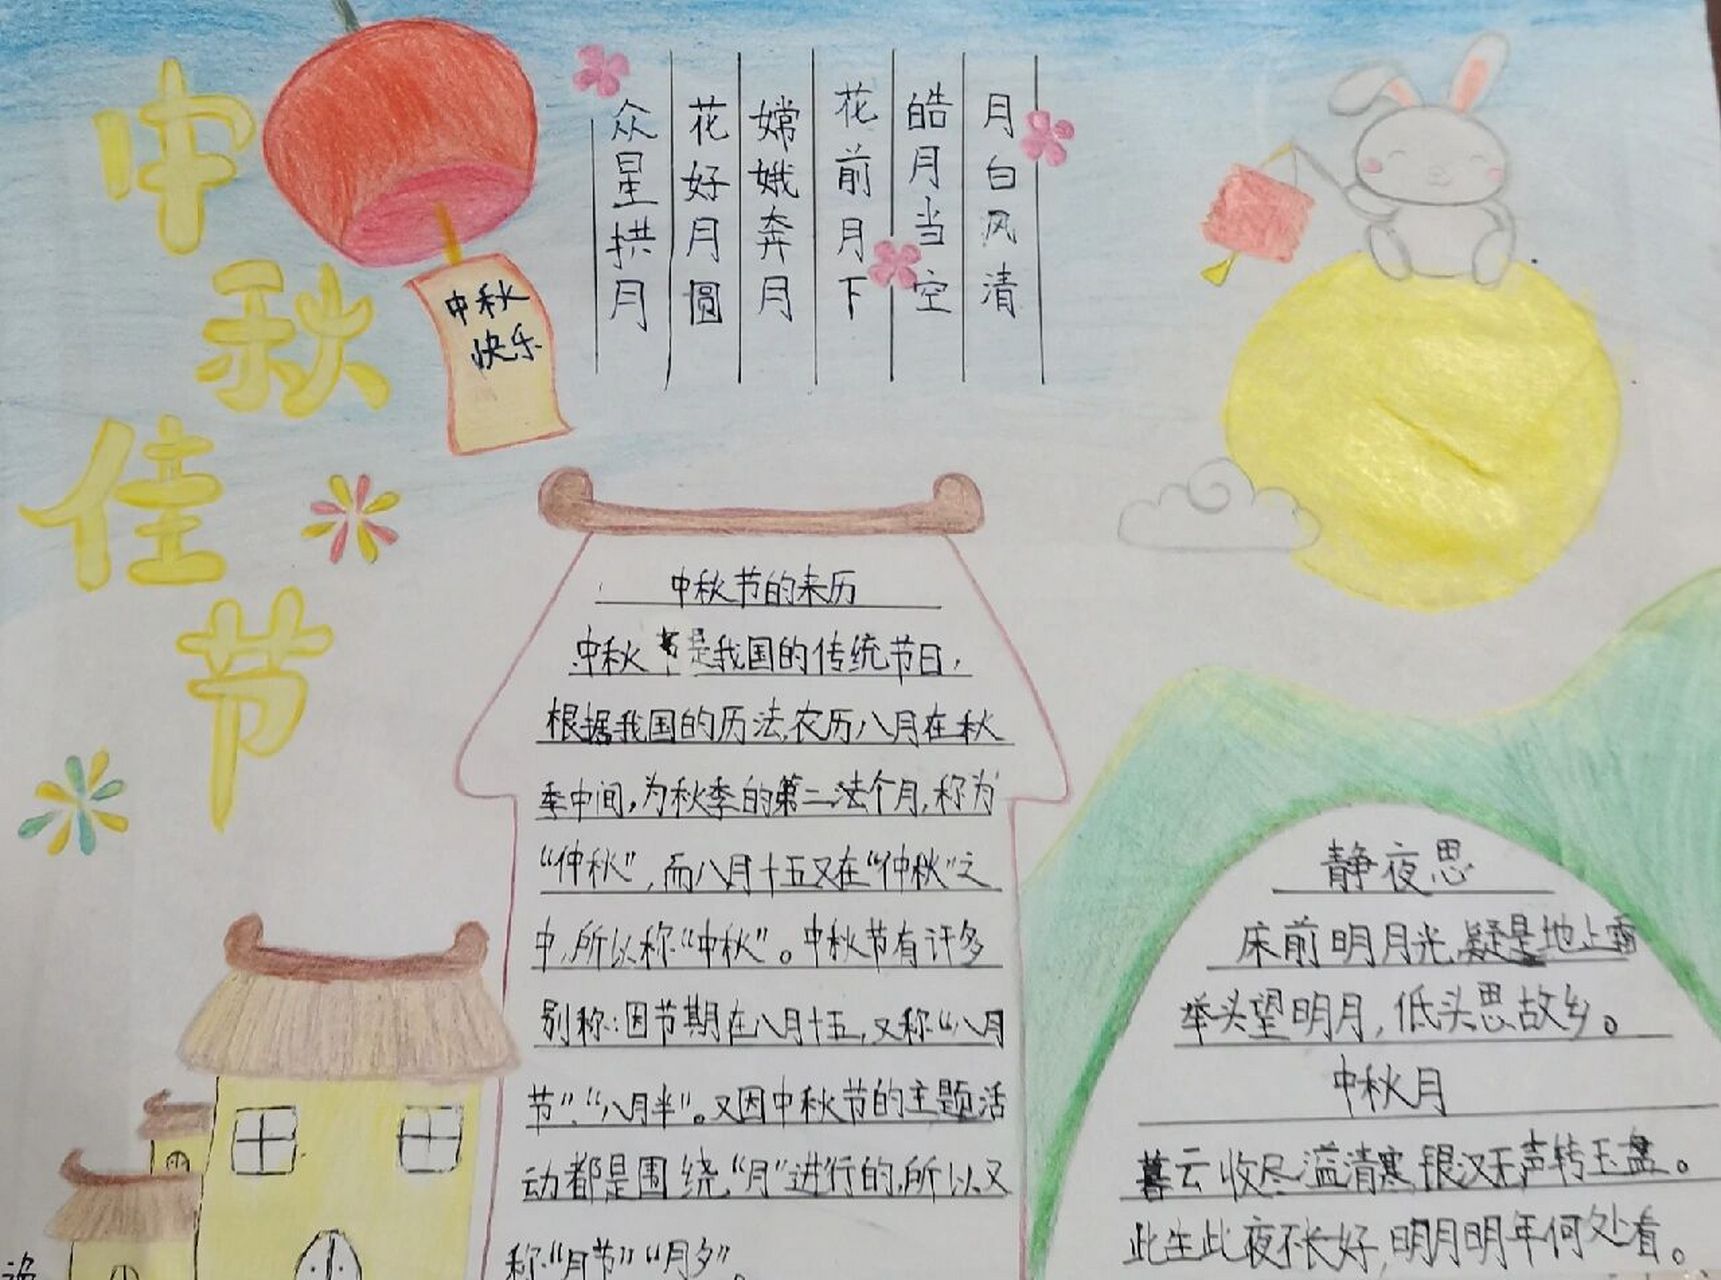 中秋佳节
中秋
快乐
众星拱月
花好月圆
嫦娥奔月
花前月下
皓月当空
月白风清
中秋节的来历
中秋节是我国的传统节日，
根据我国的历法,农历八月在秋
季中间,为秋季的第二法个月,称为
“仲秋”,而八月十五又在“仲秋”之
中,所以称“中秋”。中秋节有许多
别称:因节期在八月十五,又称“八月
节”“八月半”。又因中秋节的主题活
动都是围绕“月”进行的,所以又
称“月节”“月夕”。
静夜思
床前明月光,疑是地上霜
举头望明月,低头思故乡。
中秋月
暮云收尽溢清寒,银汉无声转玉盘。
此生此夜不长好,明月明年何处看。